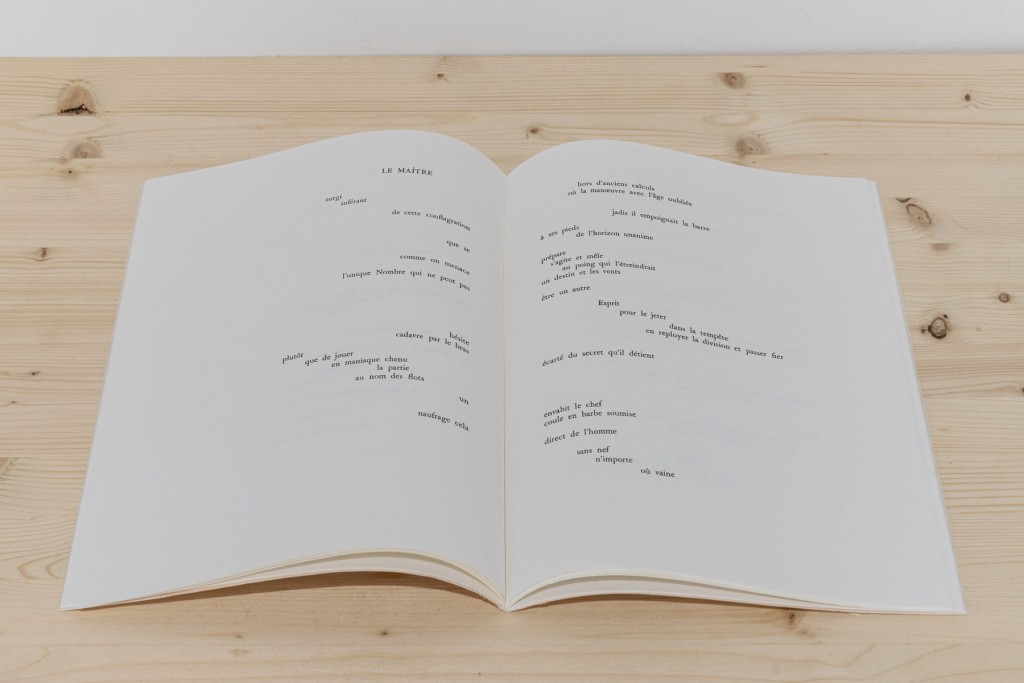 LE MAÎTRE
surgi
inférant
de cette conflagration
que se
comme on menace
l'unique Nombre qui ne peut pas
hésite
cadavre par le bras
plutôt
que de jouer
en maniaque chenu
la partie
au nom des flots
un
naufrage cela
hors d'anciens calculs
où la manœuvre avec l'âge oubliée
jadis il empoignait la barre
à ses pieds
de l'horizon unanime
prépare
s'agite et mêle
au poing qui l'étreindrait
un destin et les vents
être un autre
Esprit
pour le jeter
dans la tempête
en reployer la division et passer fier
écarté du secret qu'il détient
envahit le chef
coule en barbe soumise
direct de l'homme
sans nef
n'importe
où vaine